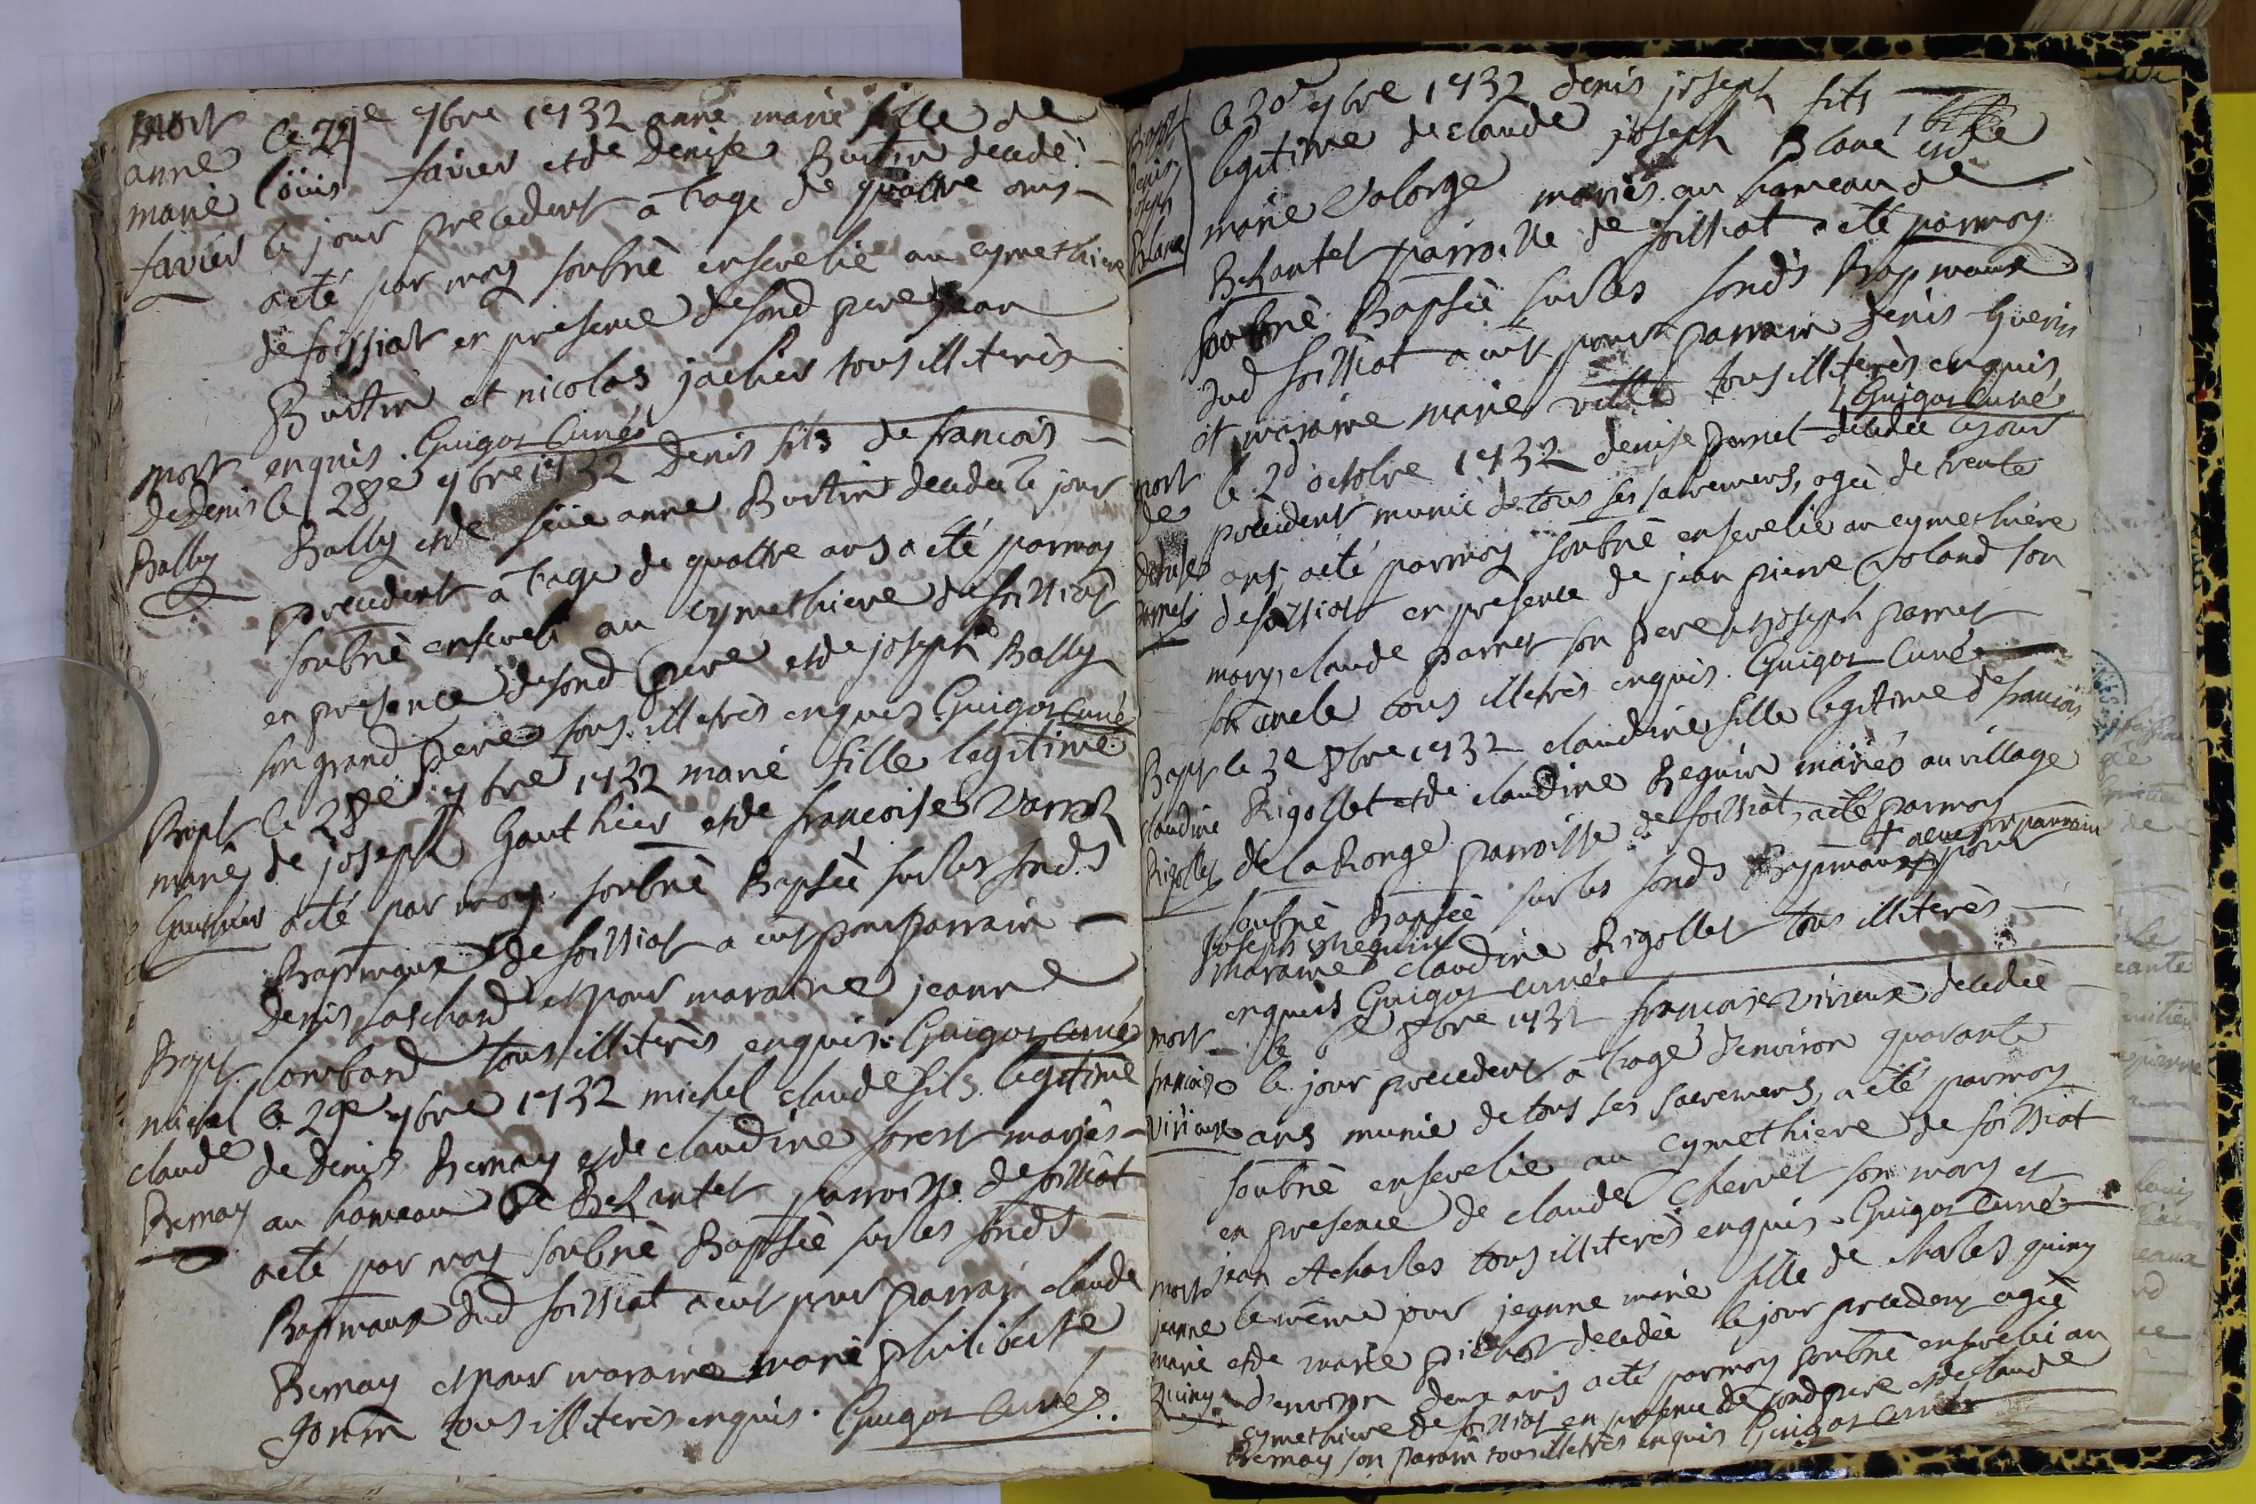 mort
anne
marie
favier
le 24e 7bre 1732 anne marie fille de
loüis favier et de denise Burtin decedé
le jour precedent a l'age de quattre ans
aeté par moy soubnè ensevelie au cymethiere
de foissiat en presence de sond pere jean
Burtin et nicolas jacher tous illiterès
enquis. Guigot Curé
mort
de denis
Bally
le 28e 7bre 1732 denis fils de francois
Bally et de feüe anne Burtin decedé le jour
precedent a l'age de quattre ans aeté parmoy
soubnè enseveli au cymethiere de foissiat
en presence de sond pere et de joseph Bally
son grand pere tous illeterès enquis Guigot Curé
Bapt
marie
Gauthier
le 28e 7bre 1732 marie fille legitime
de joseph Gauthier et de francoise
aeté par moy soubnè Bapsée sur les fonds
Bapmaux de foissiat a eut pour parrain
denis et pour maraine jeanne
lombard tous illiterès enquis. Guigot Curé
Bapt
michel
claude
Bernay
le 29e 7bre 1732 michel claude fils legitime
de denis Bernay et de claudine forest mariès
au hameau de Behantel parroisse de foissiat
aeté par moy soubnè Bapsée sur les fonds
Bapmaux dud foissiat a eut pour parrain claude
Bernay et pour maraine marie philiberte
tous illiterès enquis. Guigot Curé
Bapt
denis
joseph
Blanc
le 30e 7bre 1732 denis joseph fils
legitime de claude joseph Blanc et de
marie Valorge mariès au hameau de
Behantel parroisse de foissiat aeté parmoy
soubnè Bapsée sur les fonds Bapmaux
dud foissiat a eut pour parrain denis Guerin
et maraine marie tous illiterès enquis
Guigot Curé
mort
de
denise
parnet
le 2d octobre 1732 denise parnet decedée le jour
precedent munie de tous ses sacremens, agée de trente
ans aeté parmoy soubnè ensevelie au cymethiere
de foissiat en presence de jean pierre Roland son
mary, claude parnet son pere et joseph parnet
son oncle tous illeterès enquis. Guigot Curé
Bapt
claudine
Rigollet
le 3e 8bre 1732 claudine fille legitime de francois
Rigollet et de claudine Beguin mariés au village
de la Ronge parroisse de foissiat, aeté parmoy
soubnè Bapsée sur les fonds Bapmaux + a eut pr parrain pour
joseph Beguin
maraine claudine Rigollet tous illiterès
enquis Guigot curé
mort
francoise
virieux
le 6e 8bre 1732 francoise virieux decedée
le jour precedent a l'age d'environ quarante
ans munie de tous ses sacremens, a eté parmoy
soubnè ensevelie au cymethiere de foissiat
en presence de claude Chervet son mary et
jean Charles tous illiterès enquis. Guigot Curé
mort
jeanne
marie
Quiny
le même jour jeanne marie fille de charles quiny
et de marie pichot decedée le jour precedent agée
d'environ deux ans aeté parmoy soubnè enseveli au
cymethiere de foissiat en presence de sond pere et de claude
Bernay son parain tous illetrès enquis Guigot curé